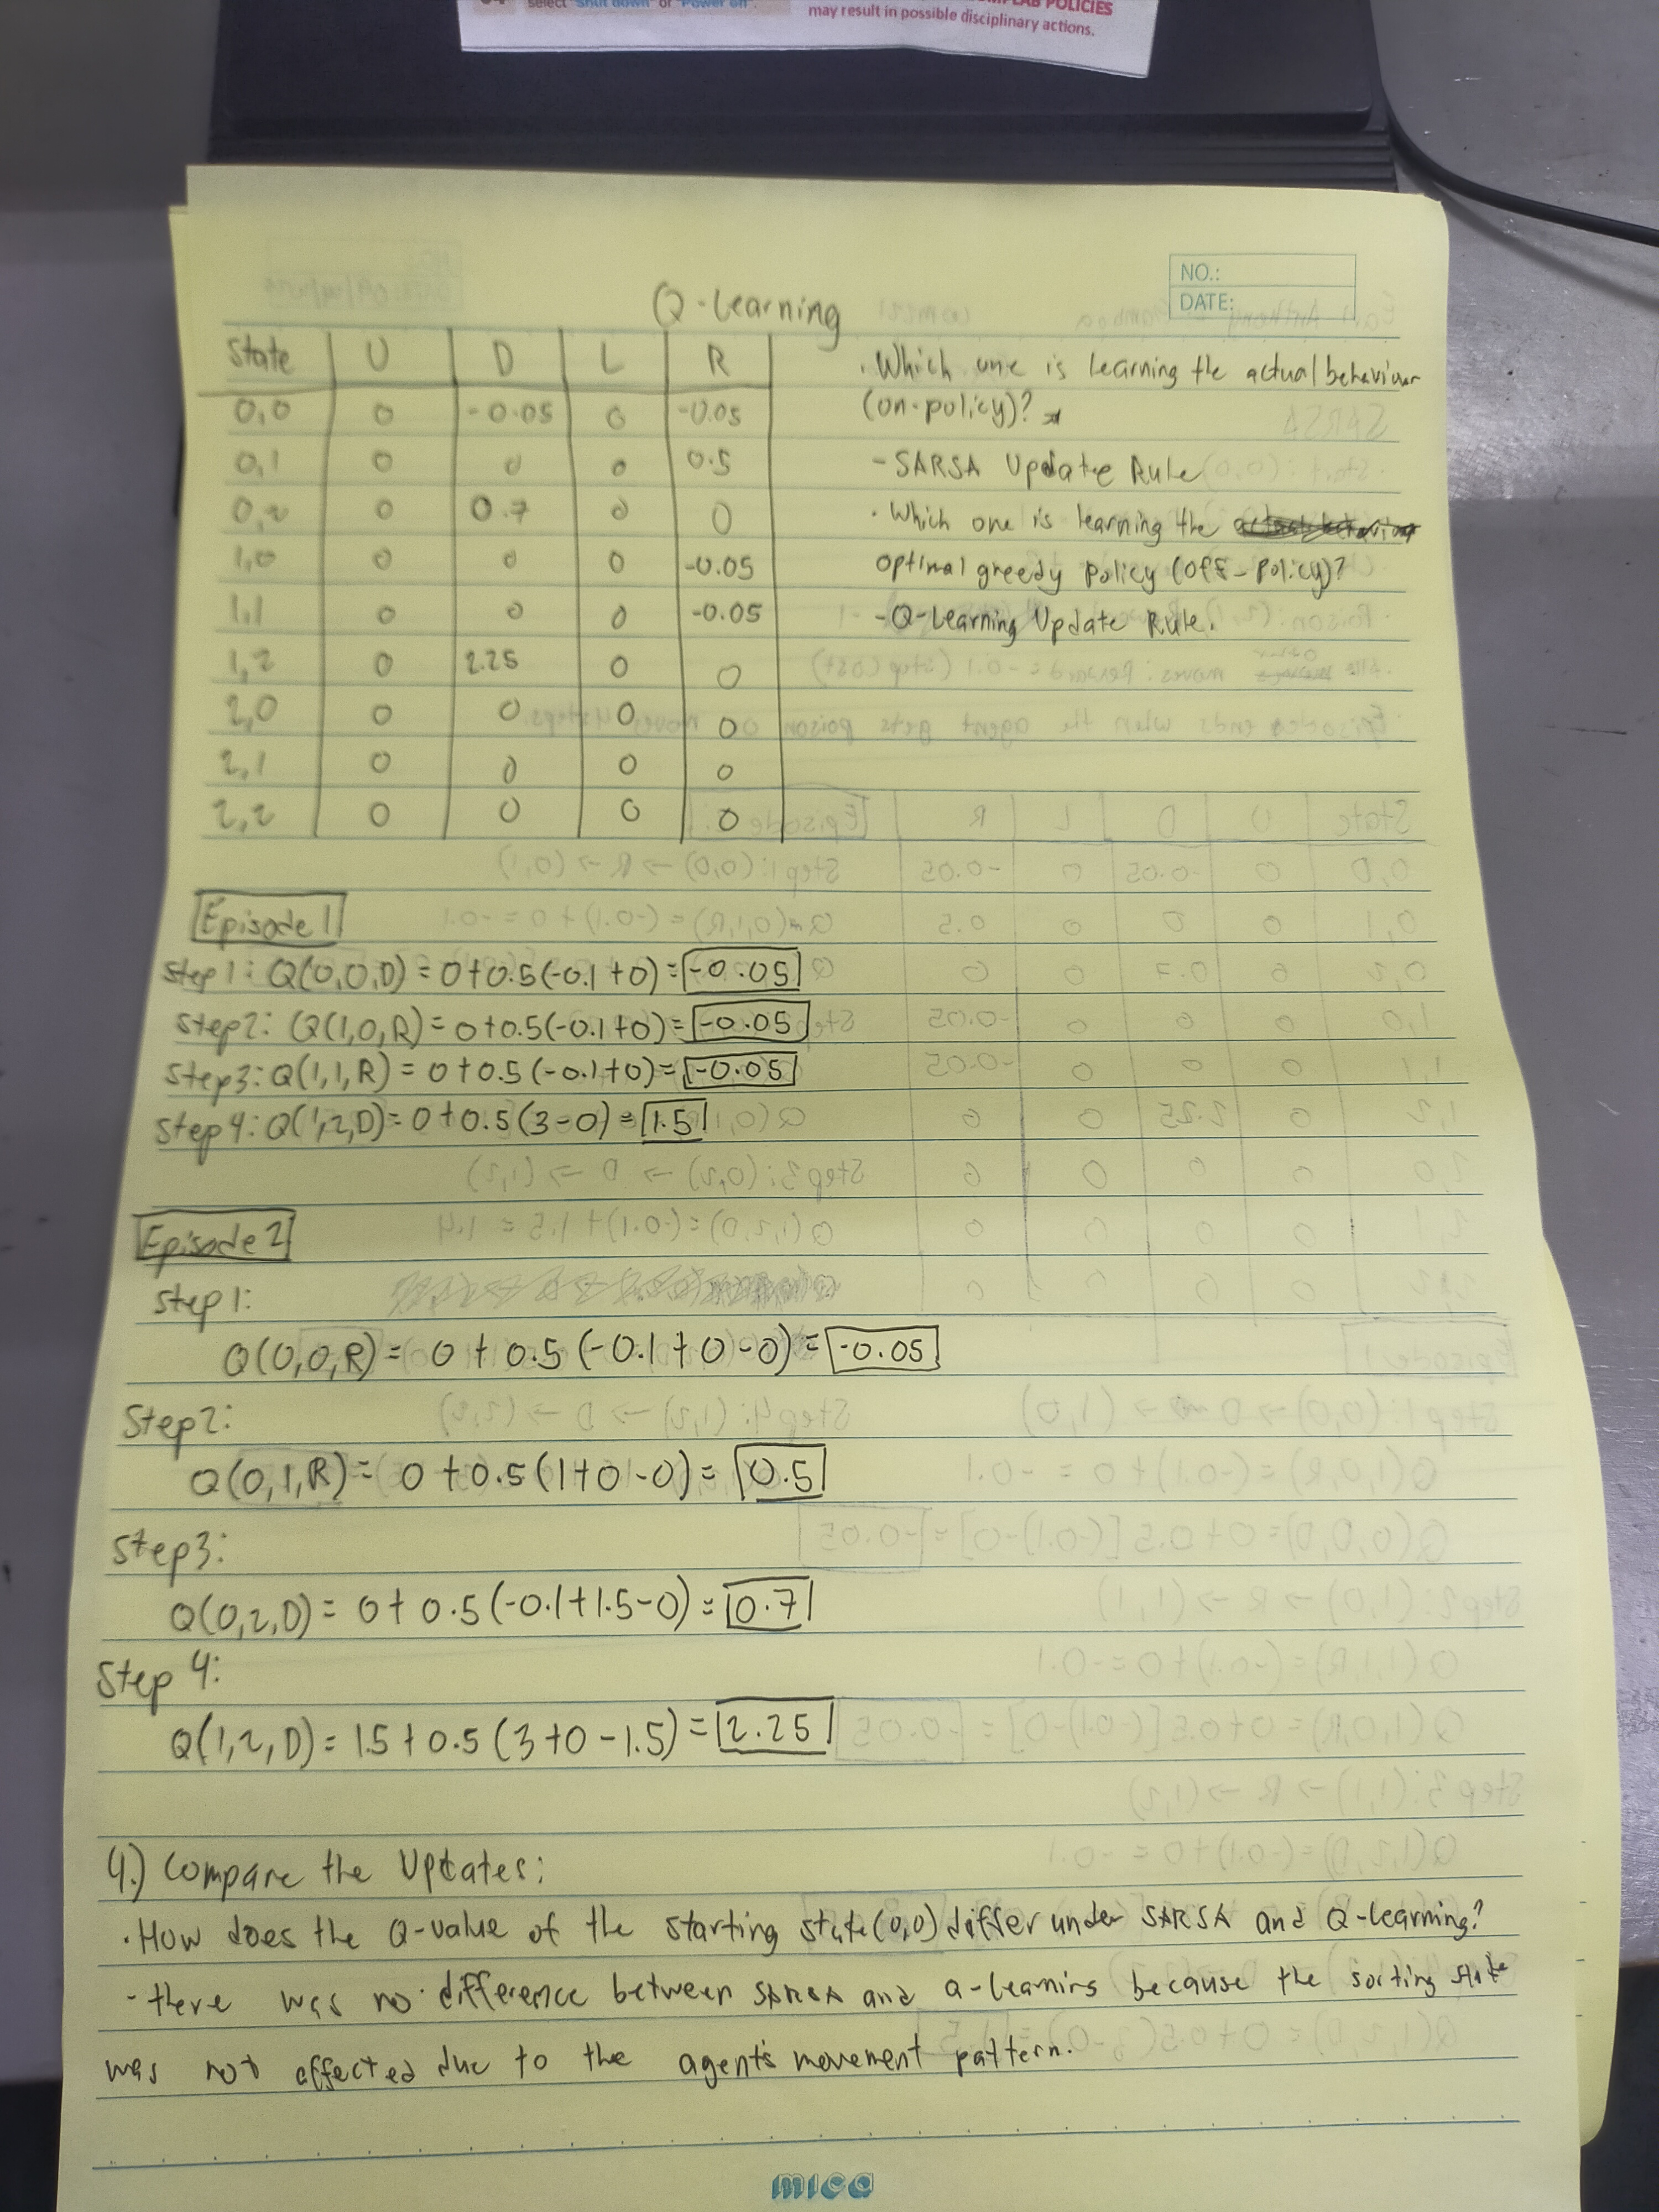 select "Shut down" or "Power off".
POLICIES
may result in possible disciplinary actions.
NO.:
DATE:
Q-Learning
State U D L R
0,0 0 -0.05 0 -0.05
0,1 0 0 0 0.5
0,2 0 0.7 0 0
1,0 0 0 0 -0.05
1,1 0 0 0 -0.05
1,2 0 2.25 0 0
2,0 0 0 0 0
2,1 0 0 0 0
2,2 0 0 0 0
. Which one is learning the actual behaviour
(on-policy)?
- SARSA Update Rule
. Which one is learning the
optimal greedy policy (off-policy)?
-Q-Learning Update Rule.
Episode 1
Step 1: Q(0,0,D) = 0+0.5(-0.1+0) = -0.05
Step2: Q(1,0,R) = 0+0.5(-0.1+0) = -0.05
Step3: Q(1,1,R) = 0+0.5(-0.1+0) = -0.05
Step 4: Q(1,2,D) = 0+0.5(3-0) = 1.5
Episode 2
Step 1:
Q(0,0,R) = 0 + 0.5 (-0.1+0-0) = -0.05
Step2:
Q(0,1,R) = 0+0.5(1+0-0) = 0.5
Step3:
Q(0,2,D) = 0+ 0.5(-0.1+1.5-0) = 0.7
Step 4:
Q(1,2,D) = 1.5+0.5(3+0-1.5) = 2.25
4.) Compare the Updates:
. How does the Q-value of the starting state(0,0) differ under SARSA and Q-learning?
- there was no difference between SARSA and Q-learning because the sorting state
was not affected due to the agent's movement pattern.
mica